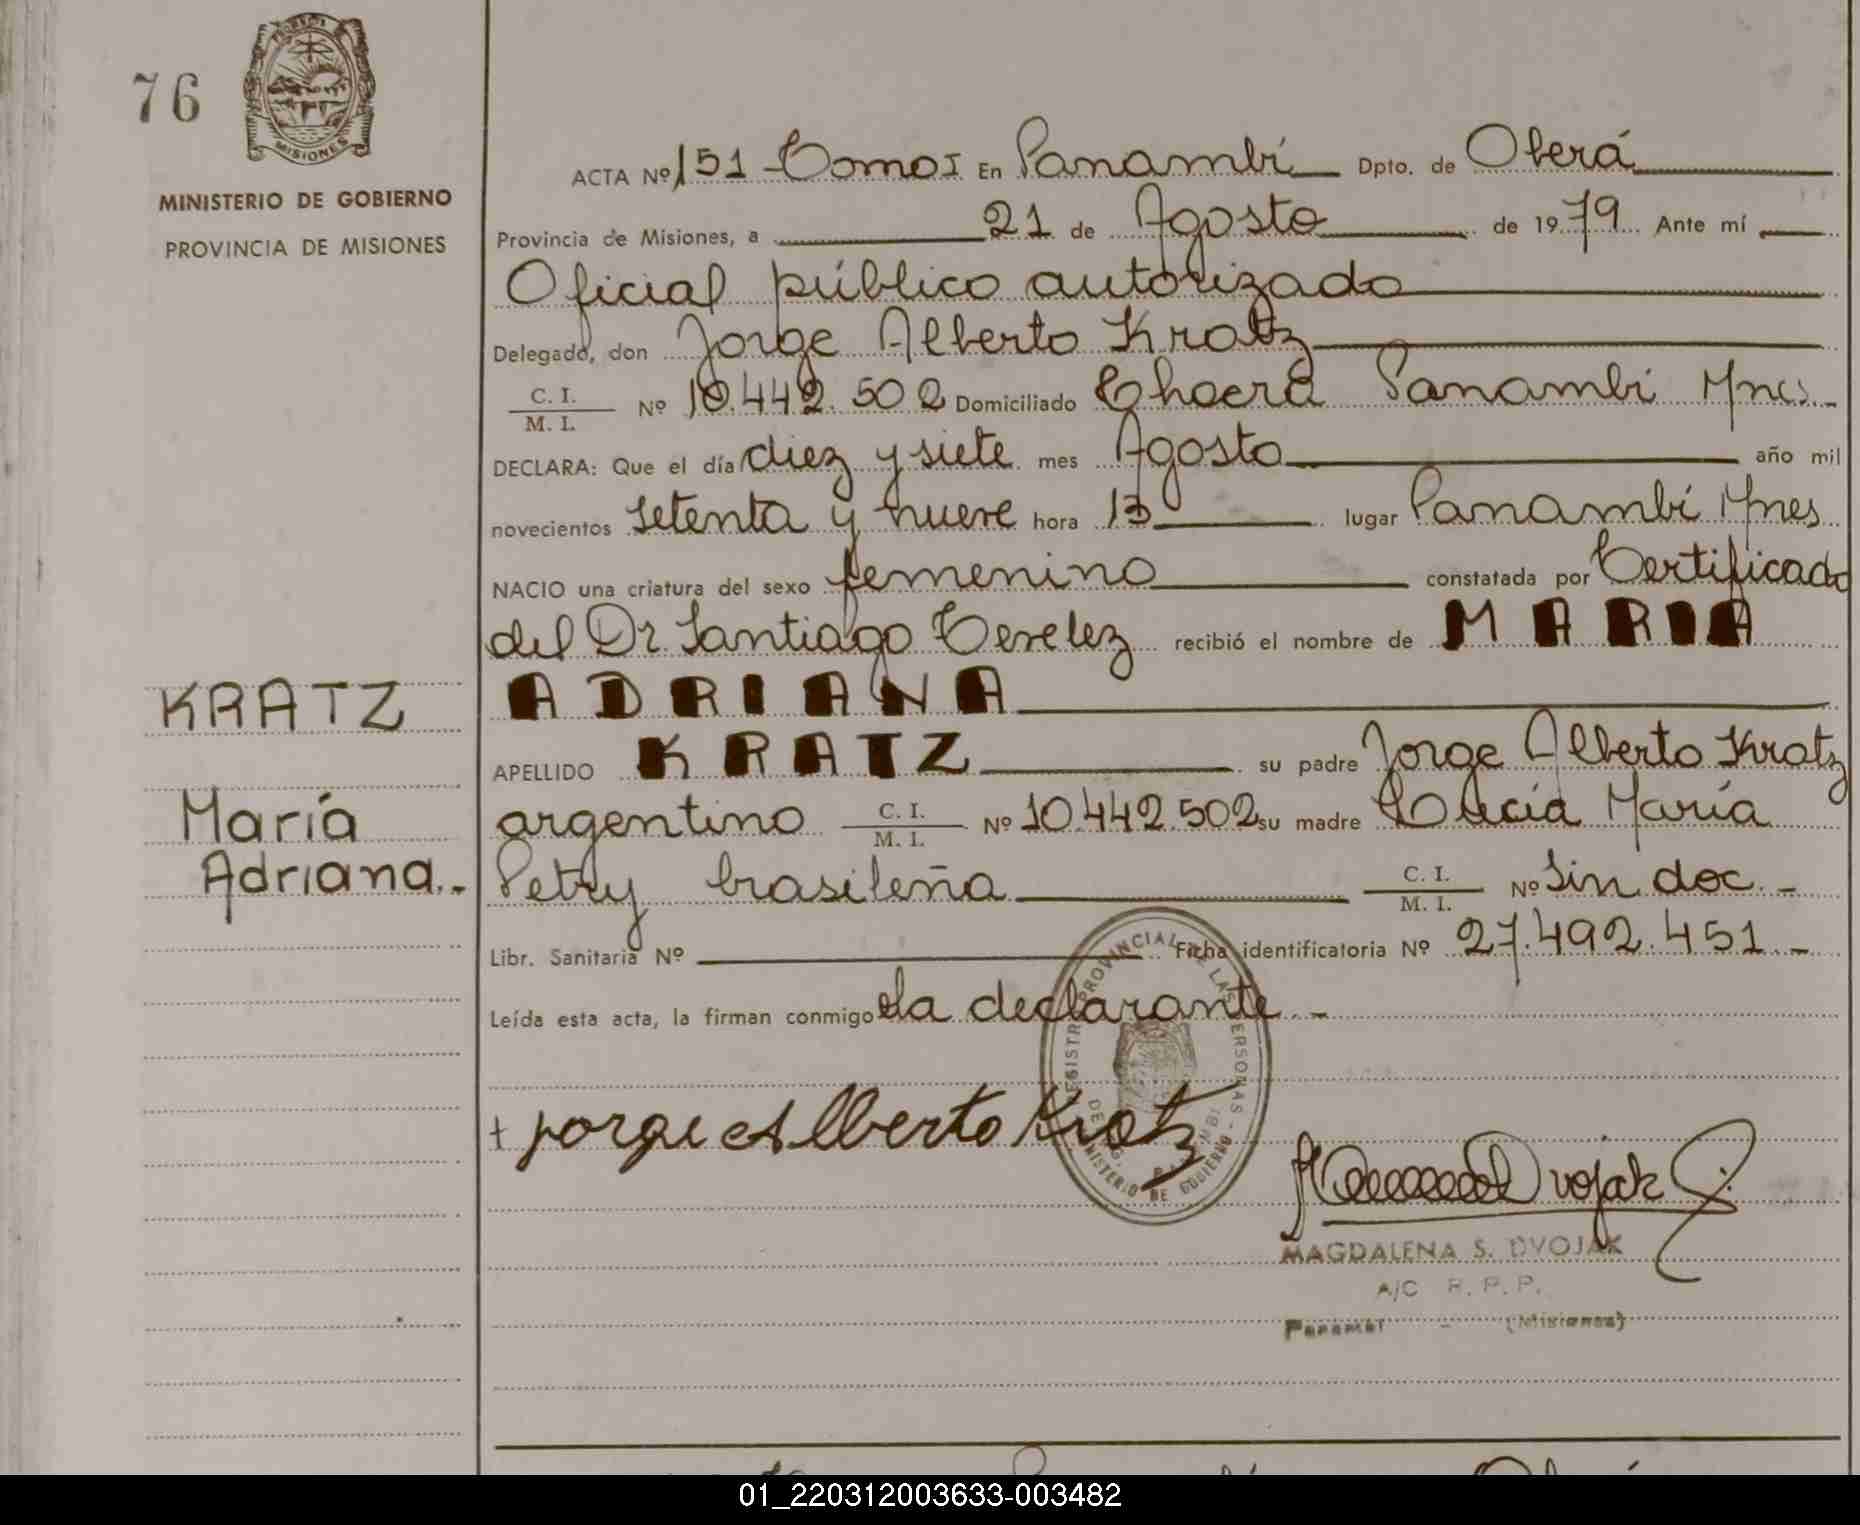 76
PROVINCIA MISIONES
MINISTERIO DE GOBIERNO
PROVINCIA DE MISIONES
ACTA Nº 151 Tomo I En Panambí Dpto. de Oberá
Provincia de Misiones, a 21 de Agosto de 1979 Ante mí
Oficial público autorizado
Delegado, don Jorge Alberto Kratz
C. I. / M. I. Nº 10.442.502 Domiciliado Chacra Panambí Mnes.
DECLARA: Que el día diez y siete mes Agosto año mil
novecientos setenta y nueve hora 13 lugar Panambí Mnes
NACIO una criatura del sexo femenino constatada por Certificado
del Dr. Santiago recibió el nombre de MARIA
ADRIANA
KRATZ
APELLIDO KRATZ su padre Jorge Alberto Kratz
María
argentino C. I. / M. I. Nº 10.442.502 su madre Lucía María
Adriana.-
Petry brasileña C. I. / M. I. Nº Sin doc. -
Libr. Sanitaria Nº Ficha identificatoria Nº 27.492.451.-
Leída esta acta, la firman conmigo la declarante.-
REGISTRO PROVINCIAL DE LAS PERSONAS - MINISTERIO DE GOBIERNO
+ Jorge Alberto Kratz
Dvojak
MAGDALENA S. DVOJAK
A/C R. P. P.
Panambí - (Misiones)
01_220312003633-003482